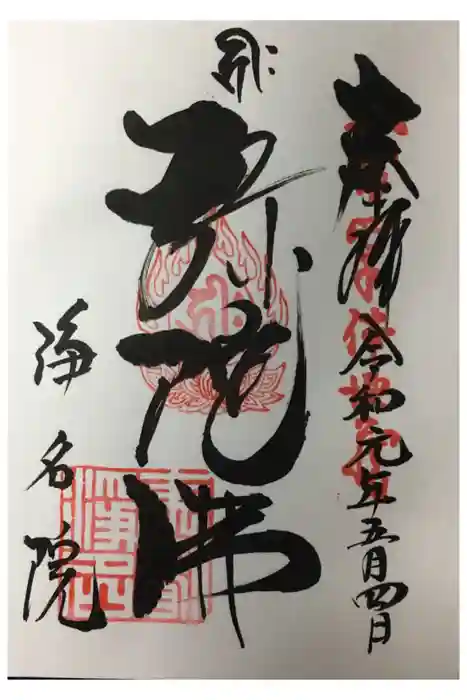 奉拝 令和元年五月四日
弥陀佛
浄名院